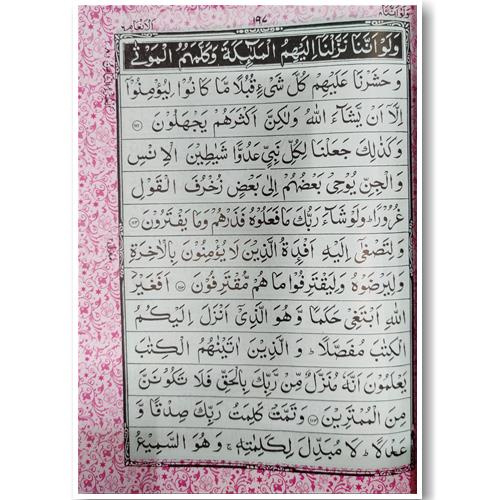 ولواننا ٨ ١٩٧ الانعام ٦
وَلَوْ اَنَّنَا نَزَّلْنَاۤ اِلَيْهِمُ الْمَلٰٓئِكَةَ وَكَلَّمَهُمُ الْمَوْتٰى
وَحَشَرْنَا عَلَيْهِمْ كُلَّ شَىْءٍ قُبُلًا مَّا كَانُوْا لِيُؤْمِنُوْۤا
اِلَّاۤ اَنْ يَّشَآءَ اللّٰهُ وَلٰكِنَّ اَكْثَرَهُمْ يَجْهَلُوْنَ ۝١١١
وَكَذٰلِكَ جَعَلْنَا لِكُلِّ نَبِىٍّ عَدُوًّا شَيٰطِيْنَ الْاِنْسِ
وَالْجِنِّ يُوْحِىْ بَعْضُهُمْ اِلٰى بَعْضٍ زُخْرُفَ الْقَوْلِ
غُرُوْرًا ؕ وَلَوْ شَآءَ رَبُّكَ مَا فَعَلُوْهُ فَذَرْهُمْ وَمَا يَفْتَرُوْنَ ۝١١٢
وَلِتَصْغٰۤى اِلَيْهِ اَفْـِٕدَةُ الَّذِيْنَ لَا يُؤْمِنُوْنَ بِالْاٰخِرَةِ
وَلِيَرْضَوْهُ وَلِيَقْتَرِفُوْا مَا هُمْ مُّقْتَرِفُوْنَ ۝١١٣ اَفَغَيْرَ
اللّٰهِ اَبْتَغِىْ حَكَمًا وَّهُوَ الَّذِىْۤ اَنْزَلَ اِلَيْكُمُ
الْكِتٰبَ مُفَصَّلًا ؕ وَالَّذِيْنَ اٰتَيْنٰهُمُ الْكِتٰبَ
يَعْلَمُوْنَ اَنَّهٗ مُنَزَّلٌ مِّنْ رَّبِّكَ بِالْحَقِّ فَلَا تَكُوْنَنَّ
مِنَ الْمُمْتَرِيْنَ ۝١١٤ وَتَمَّتْ كَلِمَتُ رَبِّكَ صِدْقًا وَّ
عَدْلًا ؕ لَا مُبَدِّلَ لِكَلِمٰتِهٖ ۚ وَهُوَ السَّمِيْعُ